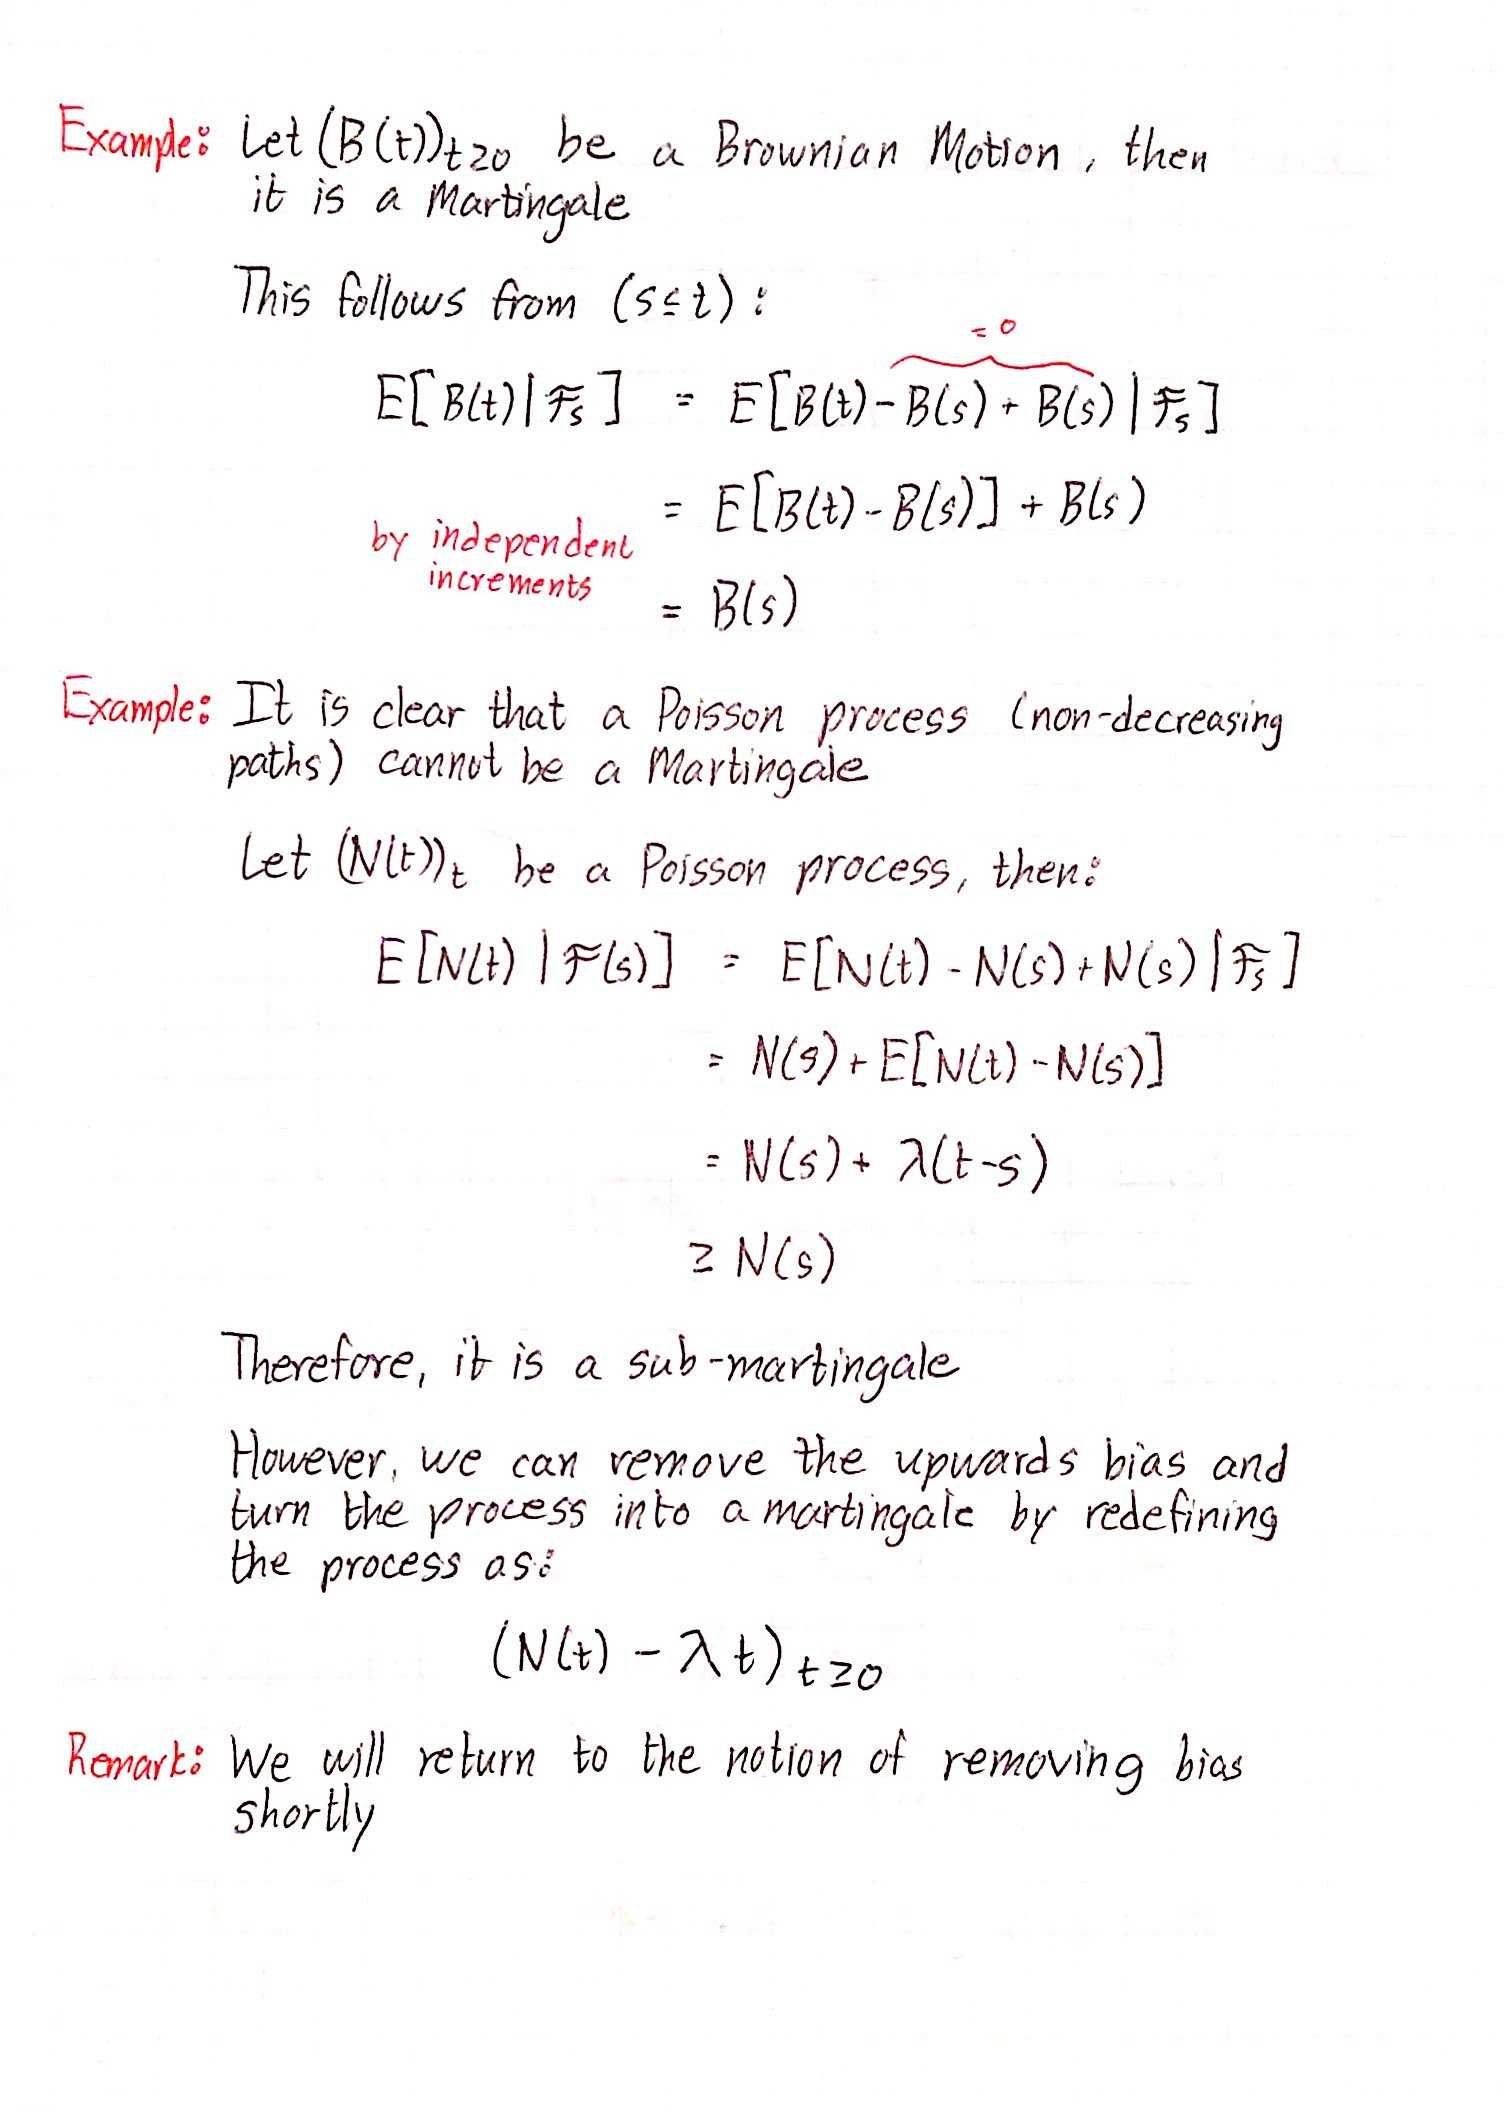 Example: Let (B(t))t≥0 be a Brownian Motion, then
it is a Martingale
This follows from (s≤t):
= 0
E[B(t)|ℱs] = E[B(t)-B(s)+B(s)|ℱs]
= E[B(t)-B(s)] + B(s)
by independent
increments
= B(s)
Example: It is clear that a Poisson process (non-decreasing
paths) cannot be a Martingale
Let (N(t))t be a Poisson process, then:
E[N(t) | ℱ(s)] = E[N(t) - N(s) + N(s) | ℱs]
= N(s) + E[N(t) - N(s)]
= N(s) + λ(t-s)
≥ N(s)
Therefore, it is a sub-martingale
However, we can remove the upwards bias and
turn the process into a martingale by redefining
the process as:
(N(t) - λt)t≥0
Remark: We will return to the notion of removing bias
shortly